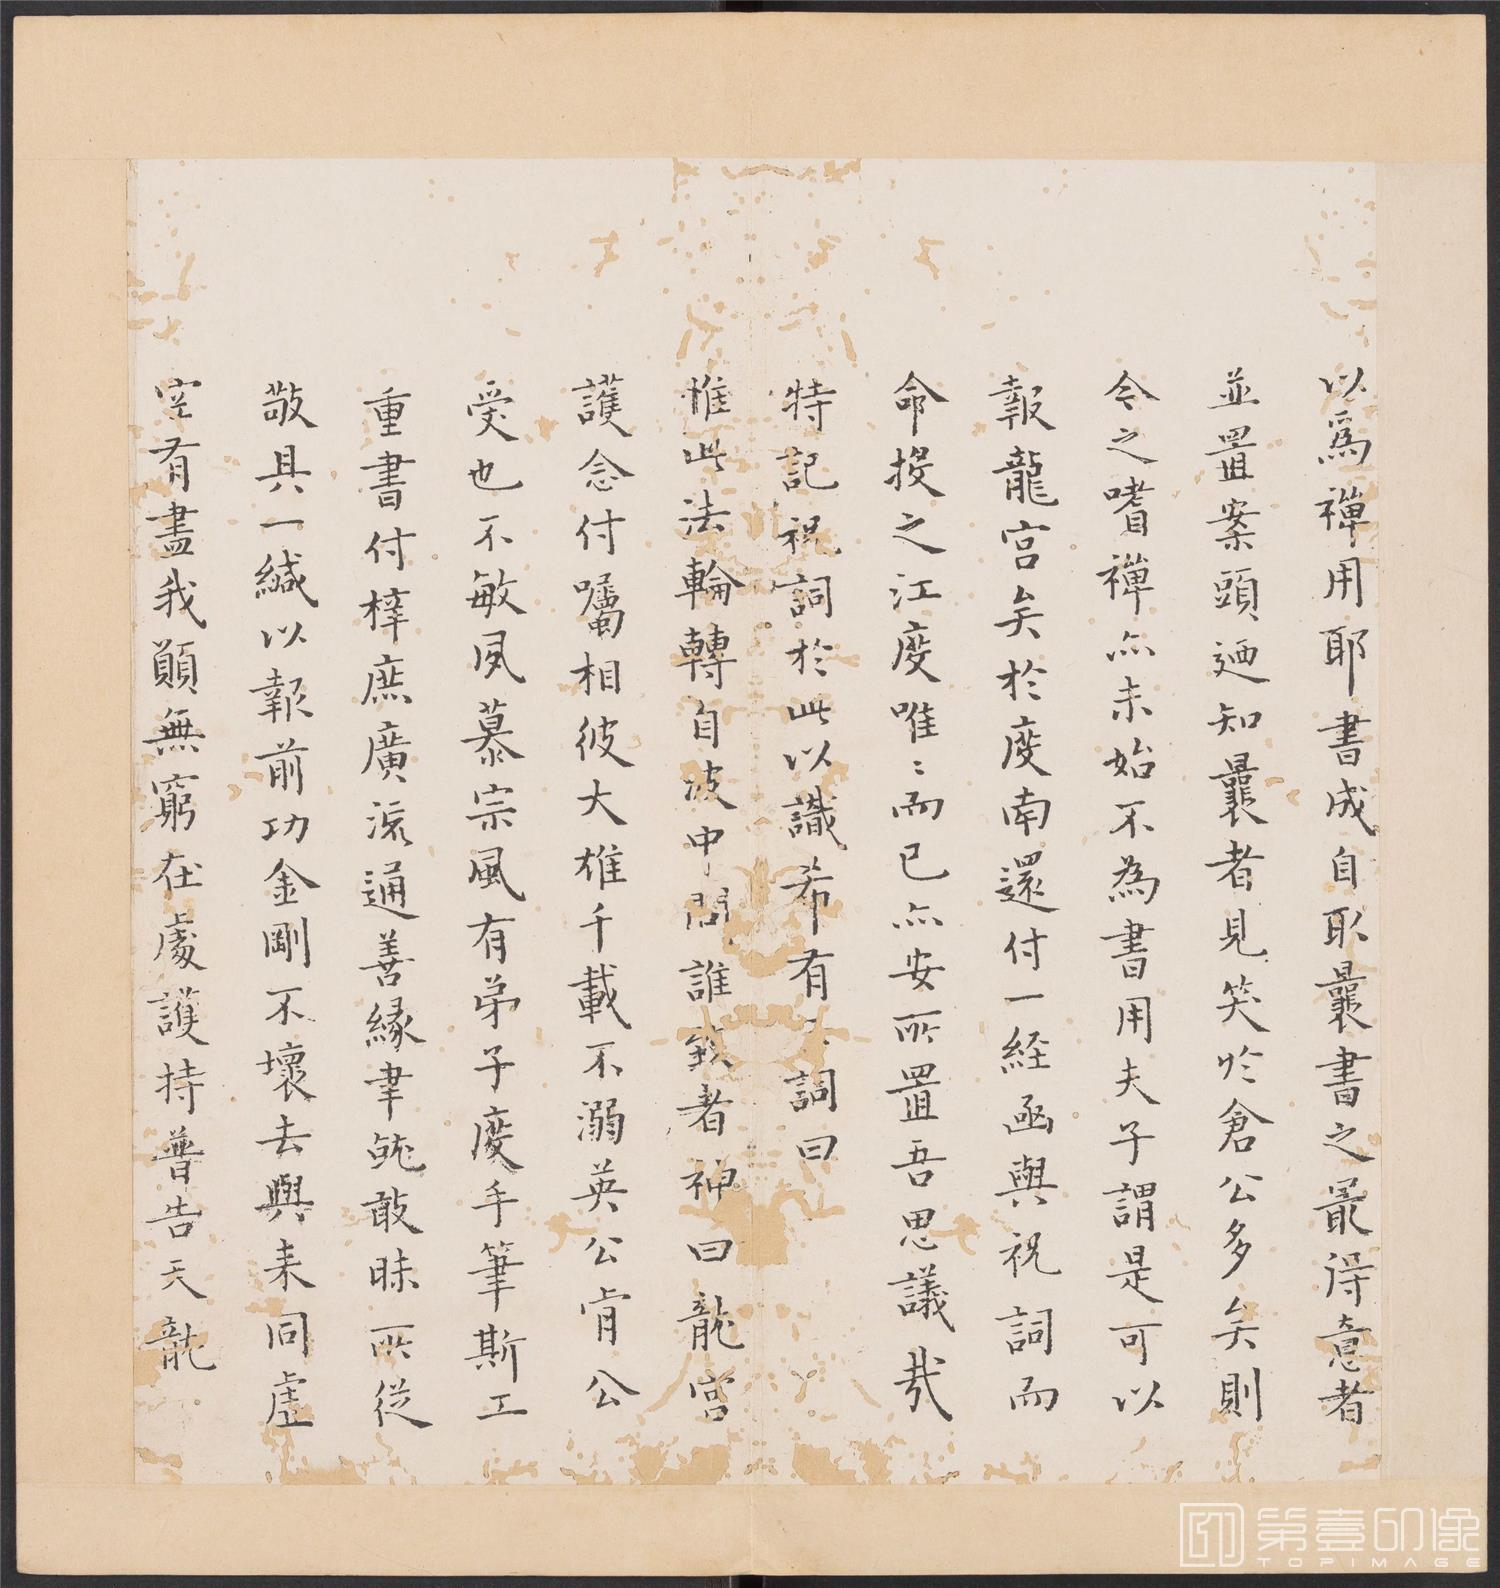 以爲禪用耶書成自取曩書之最得意者
並置案頭迺知曩者見笑於倉公多矣則
今之嗜禪亦未始不為書用夫子謂是可以
報龍宮矣於度南還付一經函與祝詞而
命投之江度唯〻而已亦安所置吾思議哉
特記祝詞於此以識希有 詞曰
惟此法輪轉自波中問誰致者神曰龍宮
護念付囑相彼大雄千載不溺英公肯公
受也不敏夙慕宗風有弟子度手筆斯工
重書付梓庶廣流通善緣聿 敢昧所從
敬具一緘以報前功金剛不壞去與来同虛
空有盡我願無窮在處護持普告天龍
第壹印像
TOPIMAGE